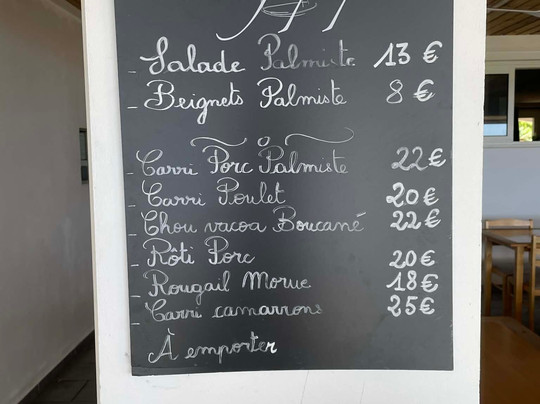 - Salade Palmiste 13 €
- Beignets Palmiste 8 €
- Carri Porc Palmiste 22 €
- Carri Poulet 20 €
- Chou vacoa Boucané 22 €
- Rôti Porc 20 €
- Rougail Morue 18 €
- Carri camarrons 25 €
À emporter